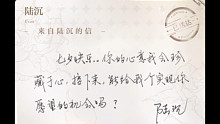 陆沉
来自陆沉的信
七夕快乐。你的心意我会珍
藏于心。接下来，能给我个实现你
愿望的机会吗？
陆沉